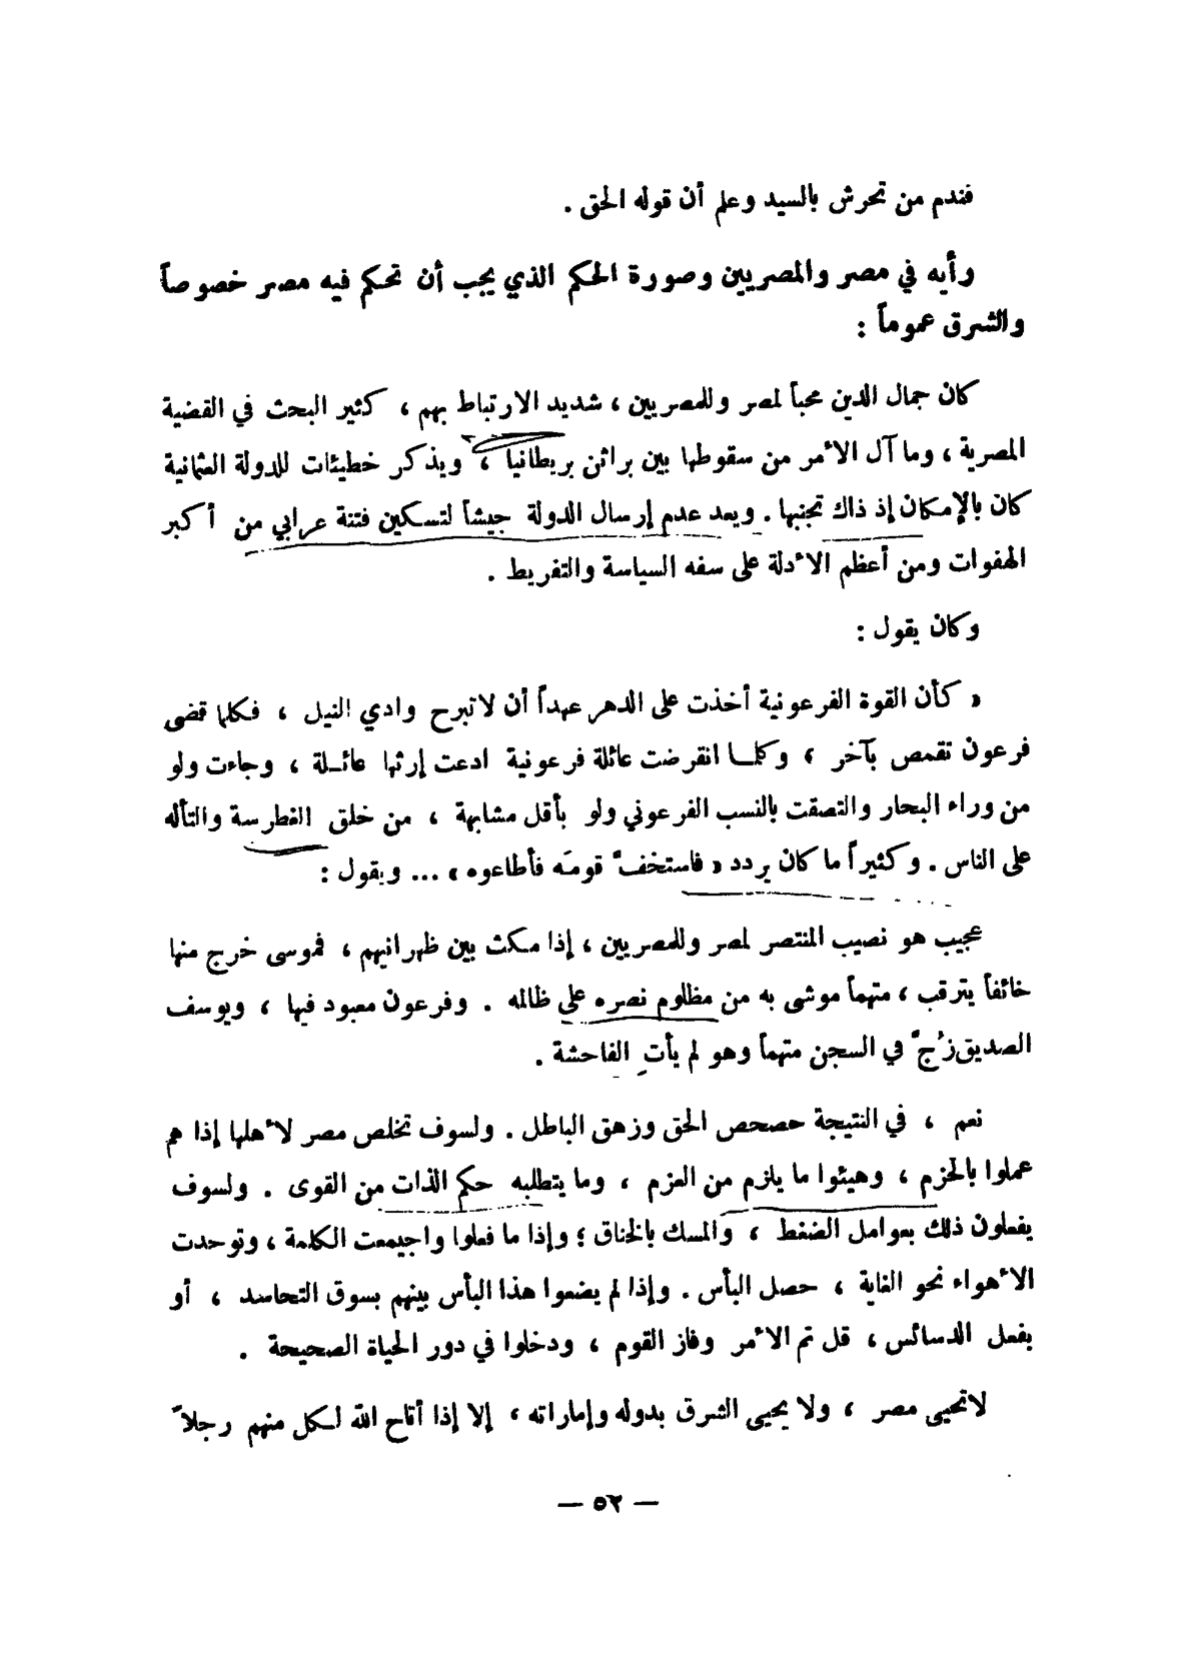 فندم من تحرش بالسيد وعلم أن قوله الحق .
رأيه في مصر والمصريين وصورة الحكم الذي يجب أن تحكم فيه مصر خصوصاً
والشرق عموماً :
كان جمال الدين محباً لمصر وللمصريين ، شديد الارتباط بهم ، كثير البحث في القضية
المصرية ، وما آل الأمر من سقوطها بين براثن بريطانيا ، ويذكر خطيئات للدولة العثمانية
كان بالإمكان إذ ذاك تجنبها . ويعد عدم إرسال الدولة جيشاً لتسكين فتنة عرابي من أكبر
الهفوات ومن أعظم الأدلة على سفه السياسة والتفريط .
وكان يقول :
« كأن القوة الفرعونية أخذت على الدهر عهداً أن لاتبرح وادي النيل ، فكلما قضى
فرعون تقمص بآخر ، وكلما انقرضت عائلة فرعونية ادعت إرثها عائلة ، وجاءت ولو
من وراء البحار والتصقت بالنسب الفرعوني ولو بأقل مشابهة ، من خلق الغطرسة والتأله
على الناس . وكثيراً ما كان يردد « فاستخفّ قومَه فأطاعوه » ... ويقول :
عجيب هو نصيب المنتصر لمصر وللمصريين ، إذا مكث بين ظهرانيهم ، فموسى خرج منها
خائفاً يترقب ، متهماً موشى به من مظلوم نصره على ظالمه . وفرعون معبود فيها ، ويوسف
الصديق زُجّ في السجن متهماً وهو لم يأتِ الفاحشة .
نعم ، في النتيجة حصحص الحق وزهق الباطل . ولسوف تخلص مصر لأهلها إذا هم
عملوا بالحزم ، وهيئوا ما يلزم من العزم ، وما يتطلبه حكم الذات من القوى . ولسوف
يفعلون ذلك بعوامل الضغط ، والمسك بالخناق ؛ وإذا ما فعلوا واجتمعت الكلمة ، وتوحدت
الأهواء نحو الغاية ، حصل البأس . وإذا لم يضعوا هذا البأس بينهم بسوق التحاسد ، أو
بفعل الدسائس ، قل تم الأمر وفاز القوم ، ودخلوا في دور الحياة الصحيحة .
لاتحيى مصر ، ولا يحيى الشرق بدوله وإماراته ، إلا إذا أتاح الله لكل منهم رجلاً
— ٥٢ —